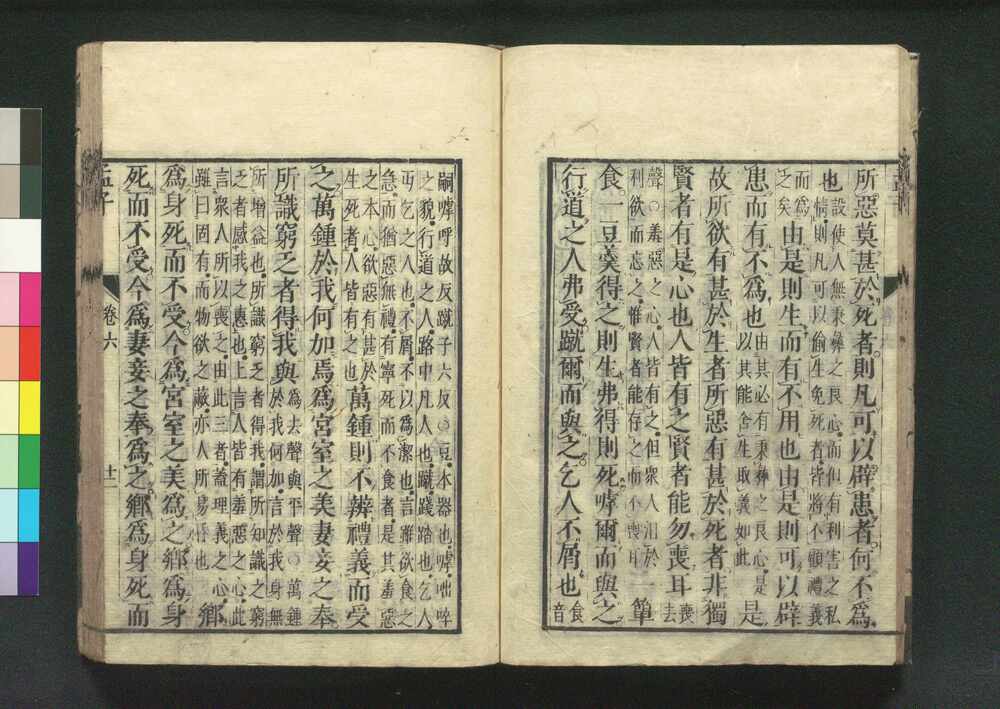 所惡莫甚於死者則凡可以辟患者何不爲
也設使人無秉彝之良心而但有利害之私
情則凡可以偷生免死者皆將不顧禮義
而爲
之矣由是則生而有不用也由是則可以辟
患而有不爲也由其必有秉彝之良心是
以其能舍生取義如此是
故所欲有甚於生者所惡有甚於死者非獨
賢者有是心也人皆有之賢者能勿喪耳喪
去
聲○羞惡之心人皆有之但衆人汨於
利欲而忘之惟賢者能存之而不喪耳一簞
食一豆羹得之則生弗得則死嘑爾而與之
行道之人弗受蹴爾而與之乞人不屑也食
音
嗣嘑呼故反蹴子六反○豆木器也嘑咄啐
之貌行道之人路中凡人也蹴踐踏也乞人
丐乞之人也不屑不以爲潔也言雖欲食之
急而猶惡無禮有寧死而不食者是其羞惡
之本心欲惡有甚於
生死者人皆有之也萬鍾則不辨禮義而受
之萬鍾於我何加焉爲宮室之美妻妾之奉
所識窮乏者得我與爲去聲與平聲○萬鍾
於我何加言於我身無
所增益也所識窮乏者得我謂所知識之窮
乏者感我之惠也上言人皆有羞惡之心此
言衆人所以喪之由此三者蓋理義之心
雖曰固有而物欲之蔽亦人所易昏也鄉
爲身死而不受今爲宮室之美爲之鄉爲身
死而不受今爲妻妾之奉爲之鄉爲身死而
孟子
卷六
十二